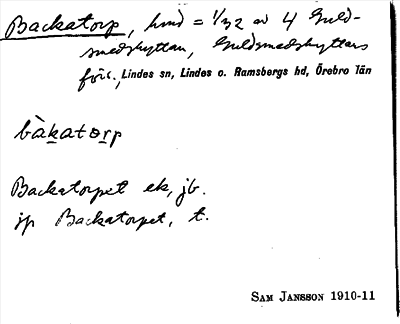 Backatorp, hmd = 1/32 av 4 Guld-
smedshyttan, Guldsmedshyttans
förs., Lindes sn, Lindes o. Ramsbergs hd, Örebro län
bàkatorp
Backatorpet ek, jb.
jp Backatorpet, t.
SAM JANSSON 1910-11